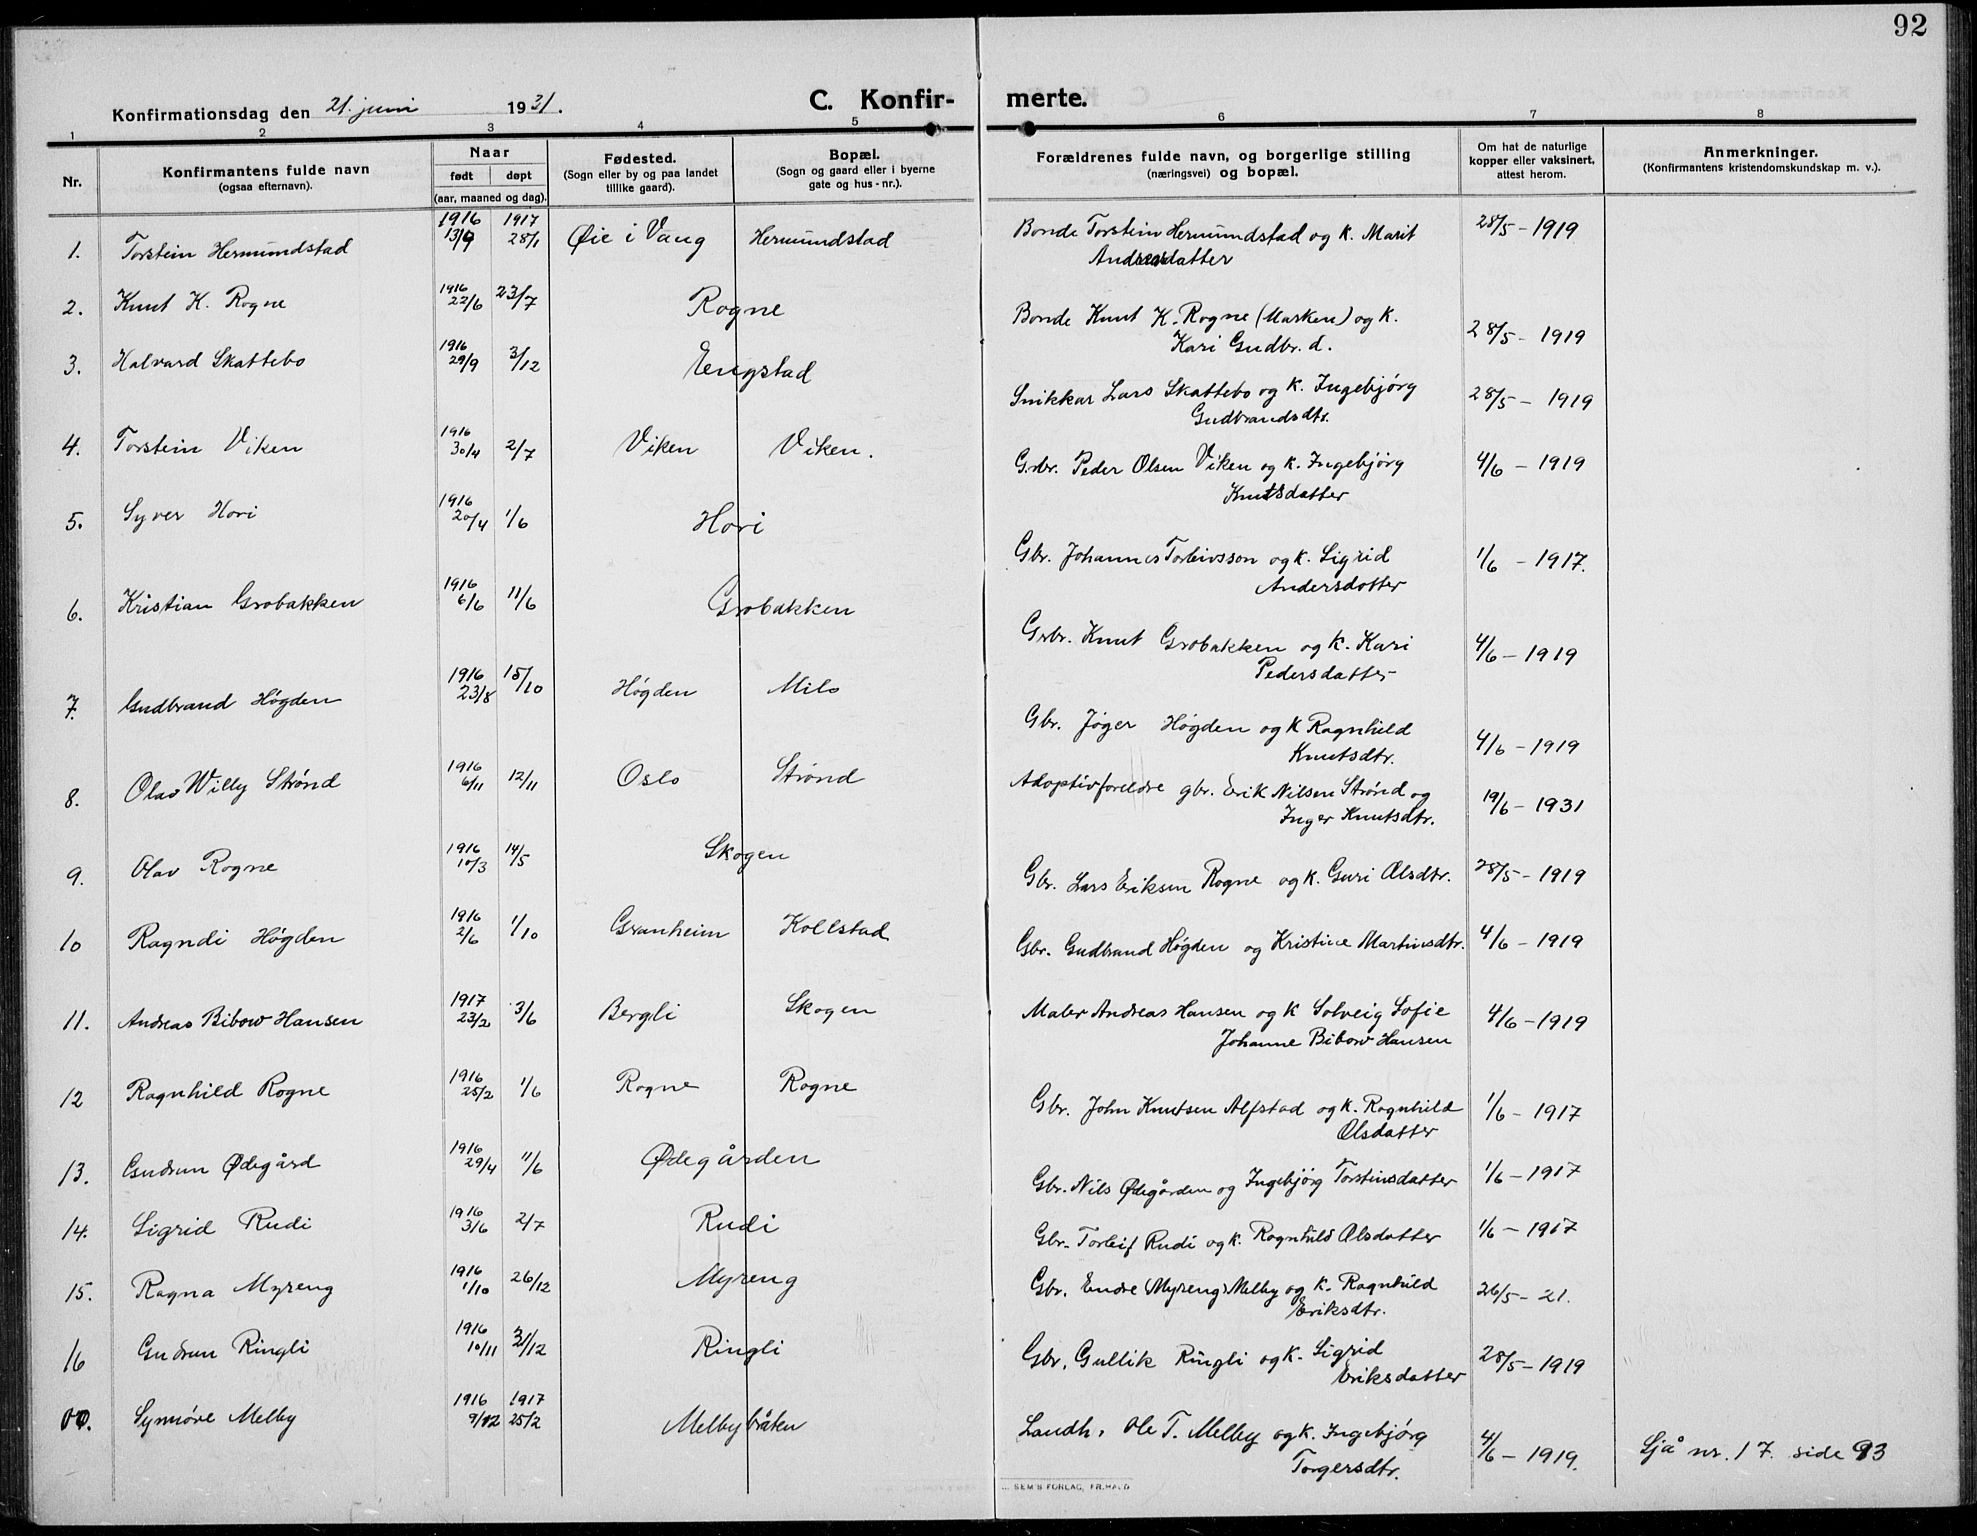 92
Konfirmationsdag den 21. juni 1931.
C. Konfir- merte.
1 2 3 4 5 6 7 8
Nr.
Konfirmantens fulde navn
(ogsaa efternavn).
Naar
født døpt
(aar, maaned og dag).
Fødested.
(Sogn eller by og paa landet
tillike gaard).
Bopæl.
(Sogn og gaard eller i byerne
gate og hus-nr.).
Forældrenes fulde navn, og borgerlige stilling
(næringsvei) og bopæl.
Om hat de naturlige
kopper eller vaksinert,
attest herom.
Anmerkninger.
(Konfirmantens kristendomskundskap m. v.).
1. Torstein Hermundstad 1916 13/9 1917 28/1 Øie i Vang Hermundstad Bonde Torstein Hermundstad og k. Marit 28/5 - 1919
Andersdatter
2. Knut K. Rogne 1916 22/6 23/7 Rogne Bonde Knut K. Rogne (Marken) og k. 28/5 - 1919
Kari Gudbr. d.
3. Halvard Skattebo 1916 29/9 3/12 Engstad Snikkar Lars Skattebo og k. Ingebjørg 28/5 - 1919
Gudbrandsdtr.
4. Torstein Viken 1916 30/4 2/7 Viken Viken. Grbr. Peder Olsen Viken og k. Ingebjørg 4/6 - 1919
Knutsdatter
5. Syver Hori 1916 20/4 1/6 Hori Gbr. Johannes Torleivsson og k. Sigrid 1/6 - 1917.
Andersdotter
6. Kristian Grobakken 1916 6/6 11/6 Grobakken Grbr. Knut Grobakken og k. Kari 4/6 - 1919
Pedersdatter
7. Gudbrand Høgden 1916 23/8 15/10 Høgden Milo Gbr. Jøger Høgden og k Ragnhild 4/6 - 1919
Knutsdtr.
8. Olav Willy Strønd 1916 6/11 12/11 Oslo Strønd Adoptivforeldre gbr. Erik Nilsen Strønd og 19/6 - 1931
Inger Knutsdtr.
9. Olav Rogne 1916 10/3 14/5 Skogen Gbr. Lars Eriksen Rogne og k. Guri Olsdtr. 28/5 - 1919
10 Ragndi Høgden 1916 2/6 1/10 Granheim Kollstad Gbr. Gudbrand Høgden og Kristine Martinsdtr. 4/6 - 1919
11. Andreas Bibow Hansen 1917 23/2 3/6 Bergli Skogen Maler Andreas Hansen og k Solveig Sofie 4/6 - 1919
Johanne Bibow Hansen
12 Ragnhild Rogne 1916 25/2 1/6 Rogne Rogne Gbr. John Knutsen Alfstad og k. Ragnhild 1/6 - 1917
Olsdatter
13. Gudrun Ødegård 1916 29/4 11/6 Ødegården Gbr. Nils Ødegården og Ingebjørg Torstinsdatter 1/6 - 1917
14. Sigrid Rudi 1916 3/6 2/7 Rudi Gbr. Torleif Rudi og k. Ragnhild Olsdatter 1/6 - 1917
15. Ragna Myreng 1916 1/10 26/12 Myreng Gbr. Endre (Myreng) Melby og k. Ragnhild 26/5 - 21.
Eriksdtr.
16 Gudrun Ringli 1916 10/11 31/12 Ringli Gbr. Gullik Ringli og k. Sigrid 28/5 - 1919
Eriksdatter
Synnøve Melby 1916 9/12 1917 25/2 Melbybråten Landh. Ole T. Melby og k. Ingebjørg 4/6 - 1919. Sjå nr. 17. side 93
Torgersdtr.
SEM'S FORLAG, FR.HALD